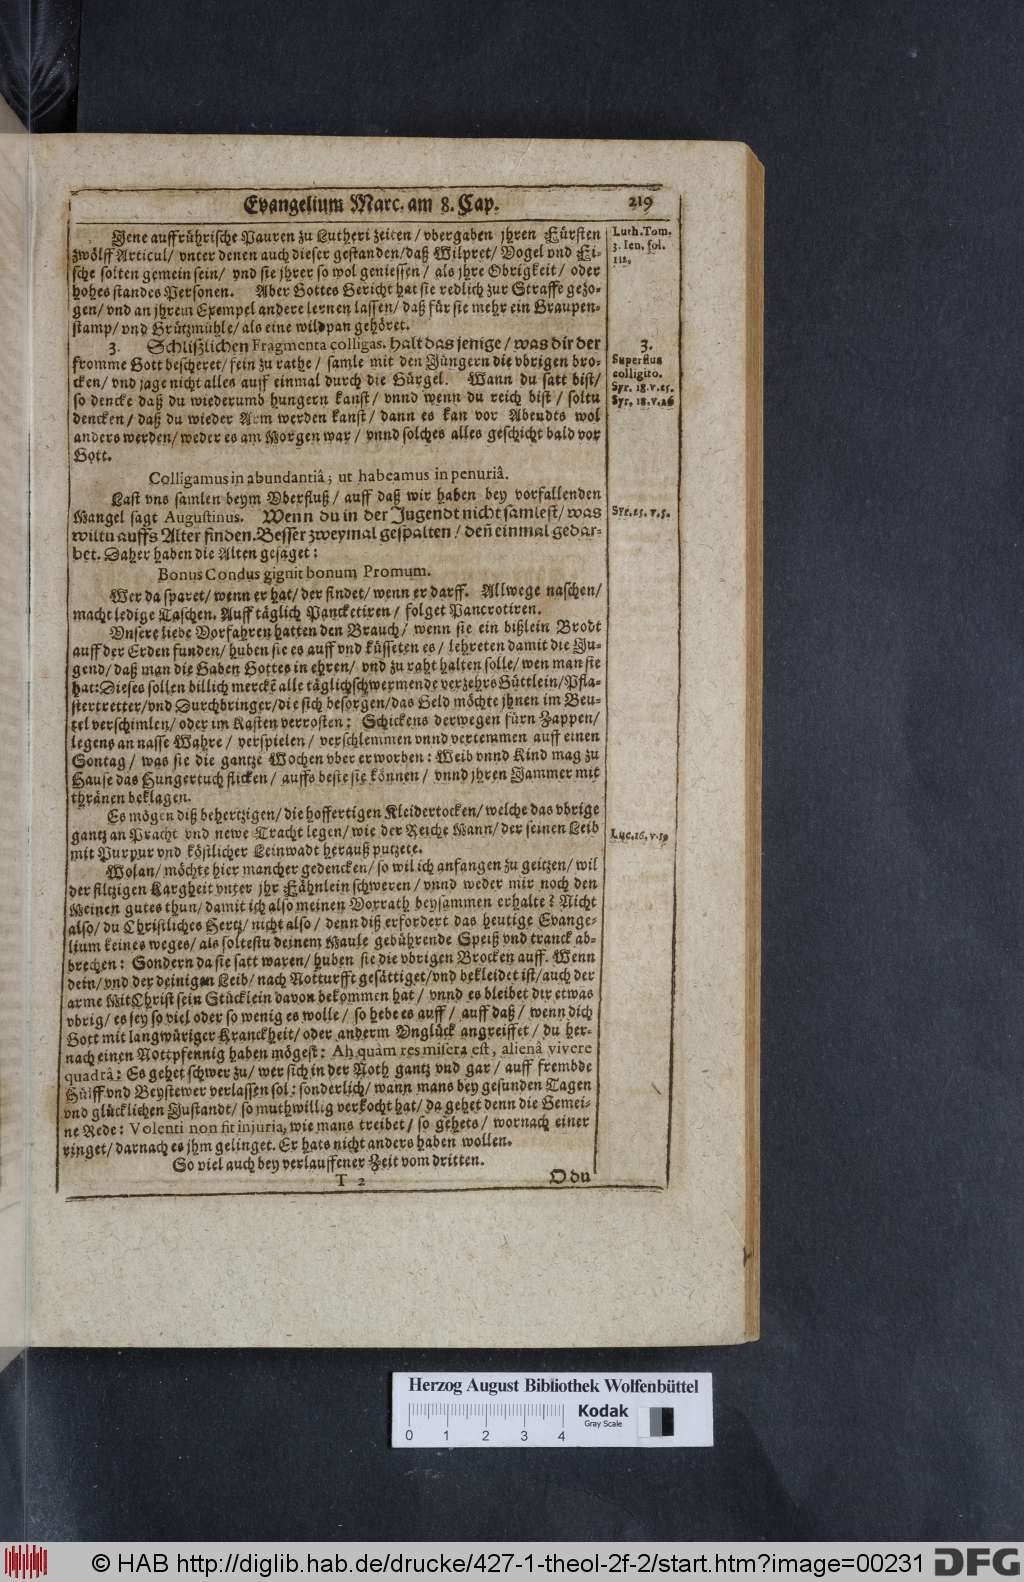 Evangelium Marc. am 8. Cap. 219
Jene auffrührische Pauren zu Lutheri zeiten / vbergaben jhren Fürsten
zwölff Articul / vnter denen auch dieser gestanden / daß Wilpret / Vogel vnd Fi-
sche solten gemein sein / vnd sie jhrer so wol geniessen / als jhre Obrigkeit / oder
hohes standes Personen. Aber Gottes Gericht hat sie redlich zur Straffe gezo-
gen / vnd an jhrem Exempel andere lernen lassen / daß für sie mehr ein Graupen-
stamp / vnd Grützmühle / als eine wildpan gehöret.
3. Schlißlichen Fragmenta colligas. Halt das jenige / was dir der
fromme Gott bescheret / fein zu rathe / samle mit den Jüngern die vbrigen bro-
cken / vnd jage nicht alles auff einmal durch die Gürgel. Wann du satt bist /
so dencke daß du wiederumb hungern kanst / vnnd wenn du reich bist / soltu
dencken / daß du wieder Arm werden kanst / dann es kan vor Abendts wol
anders werden / weder es am Morgen war / vnnd solches alles geschicht bald vor
Gott.
Colligamus in abundantiâ; ut habeamus in penuriâ.
Last vns samlen beym Vberfluß / auff daß wir haben bey vorfallenden
Mangel sagt Augustinus. Wenn du in der Jugendt nicht samlest / was
wiltu auffs Alter finden. Besser zweymal gespalten / deñ einmal gedar-
bet. Daher haben die Alten gesaget:
Bonus Condus gignit bonum Promum.
Wer da sparet / wenn er hat / der findet / wenn er darff. Allwege naschen /
macht ledige Taschen. Auff täglich Pancketiren / folget Pancrotiren.
Vnsere liebe Vorfahren hatten den Brauch / wenn sie ein bißlein Brodt
auff der Erden funden / huben sie es auff vnd küsseten es / lehreten damit die Ju-
gend / daß man die Gaben Gottes in ehren / vnd zu raht halten solle / wen man sie
hat: Dieses sollen billich merckẽ alle täglichschwermende verzehrs Güttlein / Pfla-
stertretter / vnd Durchbringer / die sich besorgen / das Geld möchte jhnen im Beu-
tel verschimlen / oder im Kasten verrosten: Schickens derwegen fürn Zappen /
legens an nasse Wahre / verspielen / verschlemmen vnnd vertemmen auff einen
Sontag / was sie die gantze Wochen vber erworben: Weib vnnd Kind mag zu
Hause das Hungertuch flicken / auffs beste sie können / vnnd jhren Jammer mit
thränen beklagen.
Es mögen diß behertzigen / die hoffertigen Kleidertocken / welche das vbrige
gantz an Pracht vnd newe Tracht legen / wie der Reiche Mann / der seinen Leib
mit Purpur vnd köstlicher Leinwadt herauß putzete.
Wolan / möchte hier mancher gedencken / so wil ich anfangen zu geitzen / wil
der filtzigen Kargheit vnter jhr Fähnlein schweren / vnnd weder mir noch den
Meinen gutes thun / damit ich also meinen Vorrath beysammen erhalte? Nicht
also / du Christliches Hertz / nicht also / denn diß erfordert das heutige Evange-
lium keines weges / als soltestu deinem Maule gebührende Speiß vnd tranck ab-
brechen: Sondern da sie satt waren / huben sie die vbrigen Brocken auff. Wenn
dein / vnd der deinigen Leib / nach Notturfft gesättiget / vnd bekleidet ist / auch der
arme MitChrist sein Stücklein davon bekommen hat / vnnd es bleibet dir etwas
vbrig / es sey so viel oder so wenig es wolle / so hebe es auff / auff daß / wenn dich
Gott mit langwüriger Kranckheit / oder anderm Vnglück angreiffet / du her-
nach einen Nottpfennig haben mögest: Ah quàm res misera est, alienâ vivere
quadrâ: Es gehet schwer zu / wer sich in der Noth gantz vnd gar / auff frembde
Hülff vnd Beystewer verlassen sol: sonderlich / wann mans bey gesunden Tagen
vnd glücklichen Zustandt / so muthwillig verkocht hat / da gehet denn die Gemei-
ne Rede: Volenti non fit injuria, wie mans treibet / so gehets / wornach einer
ringet / darnach es jhm gelinget. Er hats nicht anders haben wollen.
So viel auch bey verlauffener Zeit vom dritten.
T 2 O du
Luth. Tom.
3. Ien. fol.
112.
3.
Superflua
colligito.
Syr. 18. v. 25.
Syr. 18. v. 26
Syr. 25. v. 5.
Luc. 16. v. 19
Herzog August Bibliothek Wolfenbüttel
Kodak
Gray Scale
0 1 2 3 4
© HAB http://diglib.hab.de/drucke/427-1-theol-2f-2/start.htm?image=00231 DFG